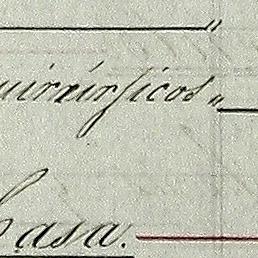 "
uirúrgicos"
Casa.